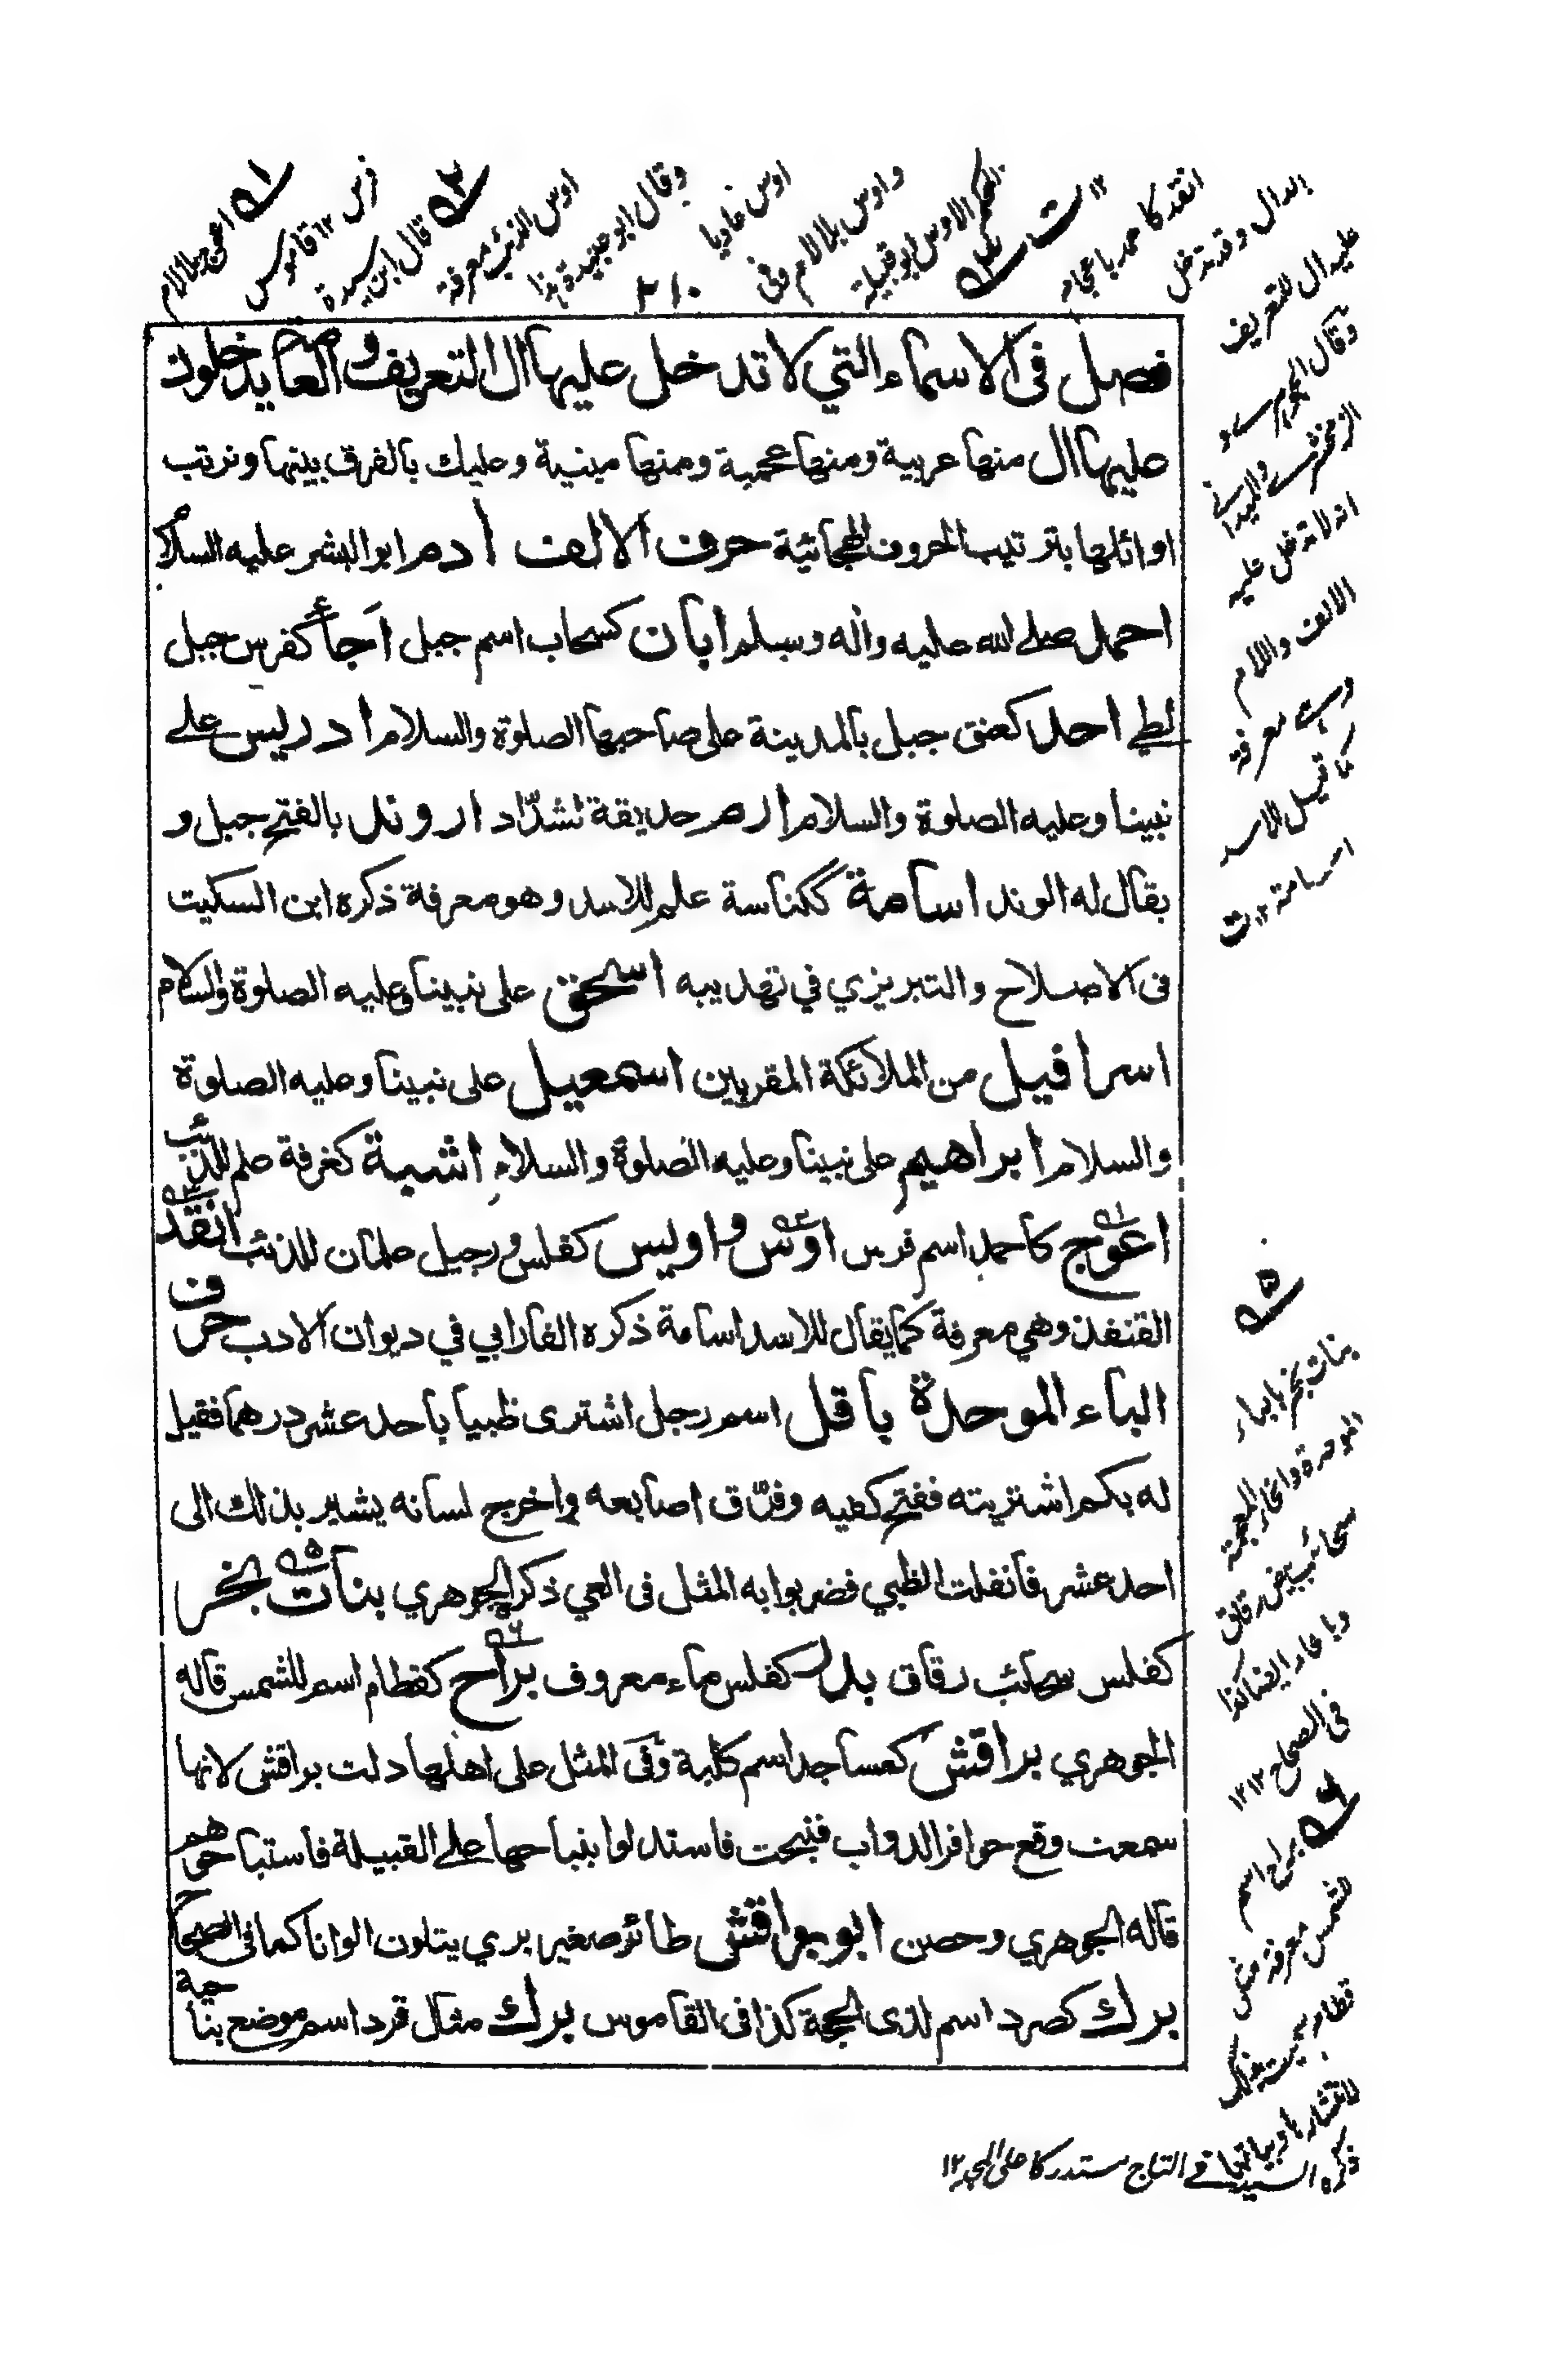 ۲۱۰
فصل فى الاسماء التي لا تدخل عليها ال التعريف
عليها ال منها عربية ومنها عجمية ومنها مبنية وعليك بالفرق بينها ونرتب
اوائلها بترتيب الحروف الهجائية حرف الالف ا دم ابو البشر عليه السلام
احمد صلے الله عليه واٰله وسلم ابان كسحاب اسم جبل اَجأ كفرس جبل
لطي احد كعنق جبل بالمدينة على صاحبها الصلوة والسلام ادريس علے
نبينا وعليه الصلوة والسلام ارم حديقة لشدّاد اروند بالفتح جبل و
يقال له الوند اسامة ككناسة علم للاسد وهو معرفة ذكره ابن السكيت
فى الاصلاح والتبريزي في تهذيبه اسحٰق على نبينا وعليه الصلوة والسلام
اسرافيل من الملائكة المقربين اسمعيل على نبينا وعليه الصلوة
والسلام ابراهيم على نبينا وعليه الصلوة والسلام اشبة كغرفة علم للذئب
اعوج كاحمد اسم فرس اوس و اويس كفلس ورجيل علمان للذئب انقد
القنفذ وهي معرفة كما يقال للاسد اسامة ذكره الفارابي في ديوان الادب حرف
الباء الموحدة باقل اسم رجل اشترى ظبيا باحد عشر درهما فقيل
له بكم اشتريته ففتح كفيه وفرّق اصابعه واخرج لسانه يشير بذلك الى
احد عشر فانفلت الظبي فضربوا به المثل فى العي ذكر الجوهري بنات بخر
كفلس سحائب رقاق بدر كفلس ماء معروف براح كقطام اسم للشمس قاله
الجوهري براقش كمساجد اسم كلبة وفى المثل على اهلها دلت براقش لانها
سمعت وقع حوافر الدواب فنبحت فاستدلوا بنباحها علے القبيلة فاستباحوهم
قاله الجوهري وحصن ابو براقش طائر صغير بري يتلون الوانا كما فى الصحاح
برك كصرد اسم لذى الحجة كذا فى القاموس برك مثال قرد اسم موضع بناحية
اعوج بلا لام
فرس ۱۲ قاموس
قال ابن سيدة
اوس الذئب معرفة
وقال ابو حنيفة
اوس عاديا
و اوس بلا لام
المحكم الاوس ابو قبيلة
انقد كاحمد باعجام
الدال وقد تدخل
عليه ال للتعريف
انه لا تدخل عليه
الالف واللام
وهى معرفة
كما قيل للاسد
اسامة ۱۲ ت
بنات بخر بالباء
الموحدة والخاء المعجمة
سحائب بيض رقاق
وبالحاء ايضا كذا
فى الصحاح ۱۲
براح اسم
للشمس معرفة مثل
قطام سميت بذلك
لانتشارها وبيانها
ذكره السيد فے التاج مستدركا على المجد ۱۲